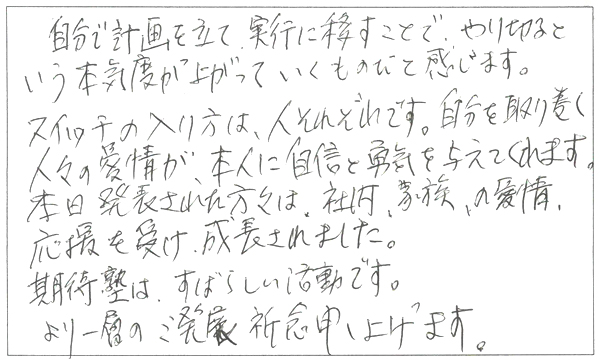 自分で計画を立て、実行に移すことで、やり切ると
いう本気度が上がっていくものだと感じます。
スイッチの入り方は、人それぞれです。自分を取り巻く
人々の愛情が、本人に自信と勇気を与えてくれます。
本日発表された方々は、社内、家族、の愛情、
応援を受け、成長されました。
期待塾は、すばらしい活動です。
より一層のご発展祈念申し上げます。